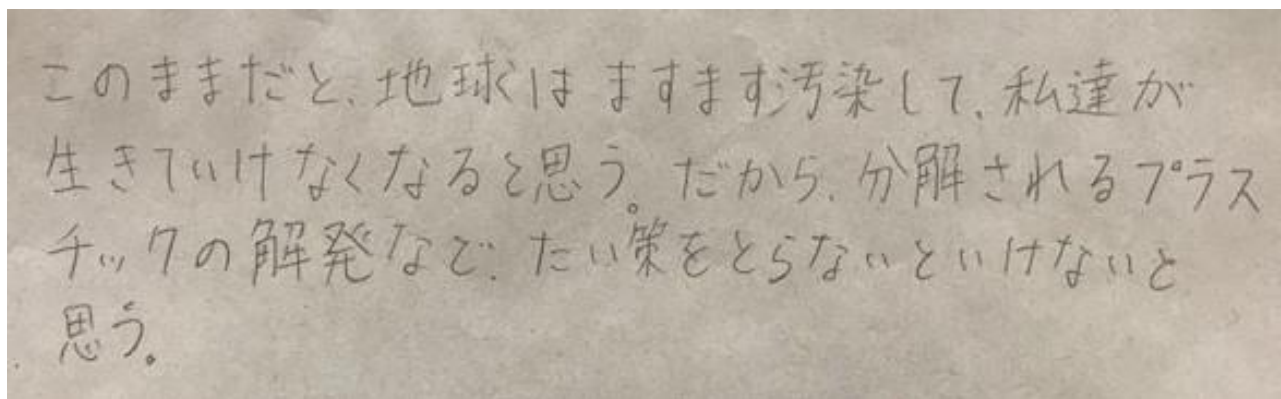 このままだと、地球はますます汚染して、私達が
生きていけなくなると思う。だから、分解されるプラス
チックの解発など、たい策をとらないといけないと
思う。